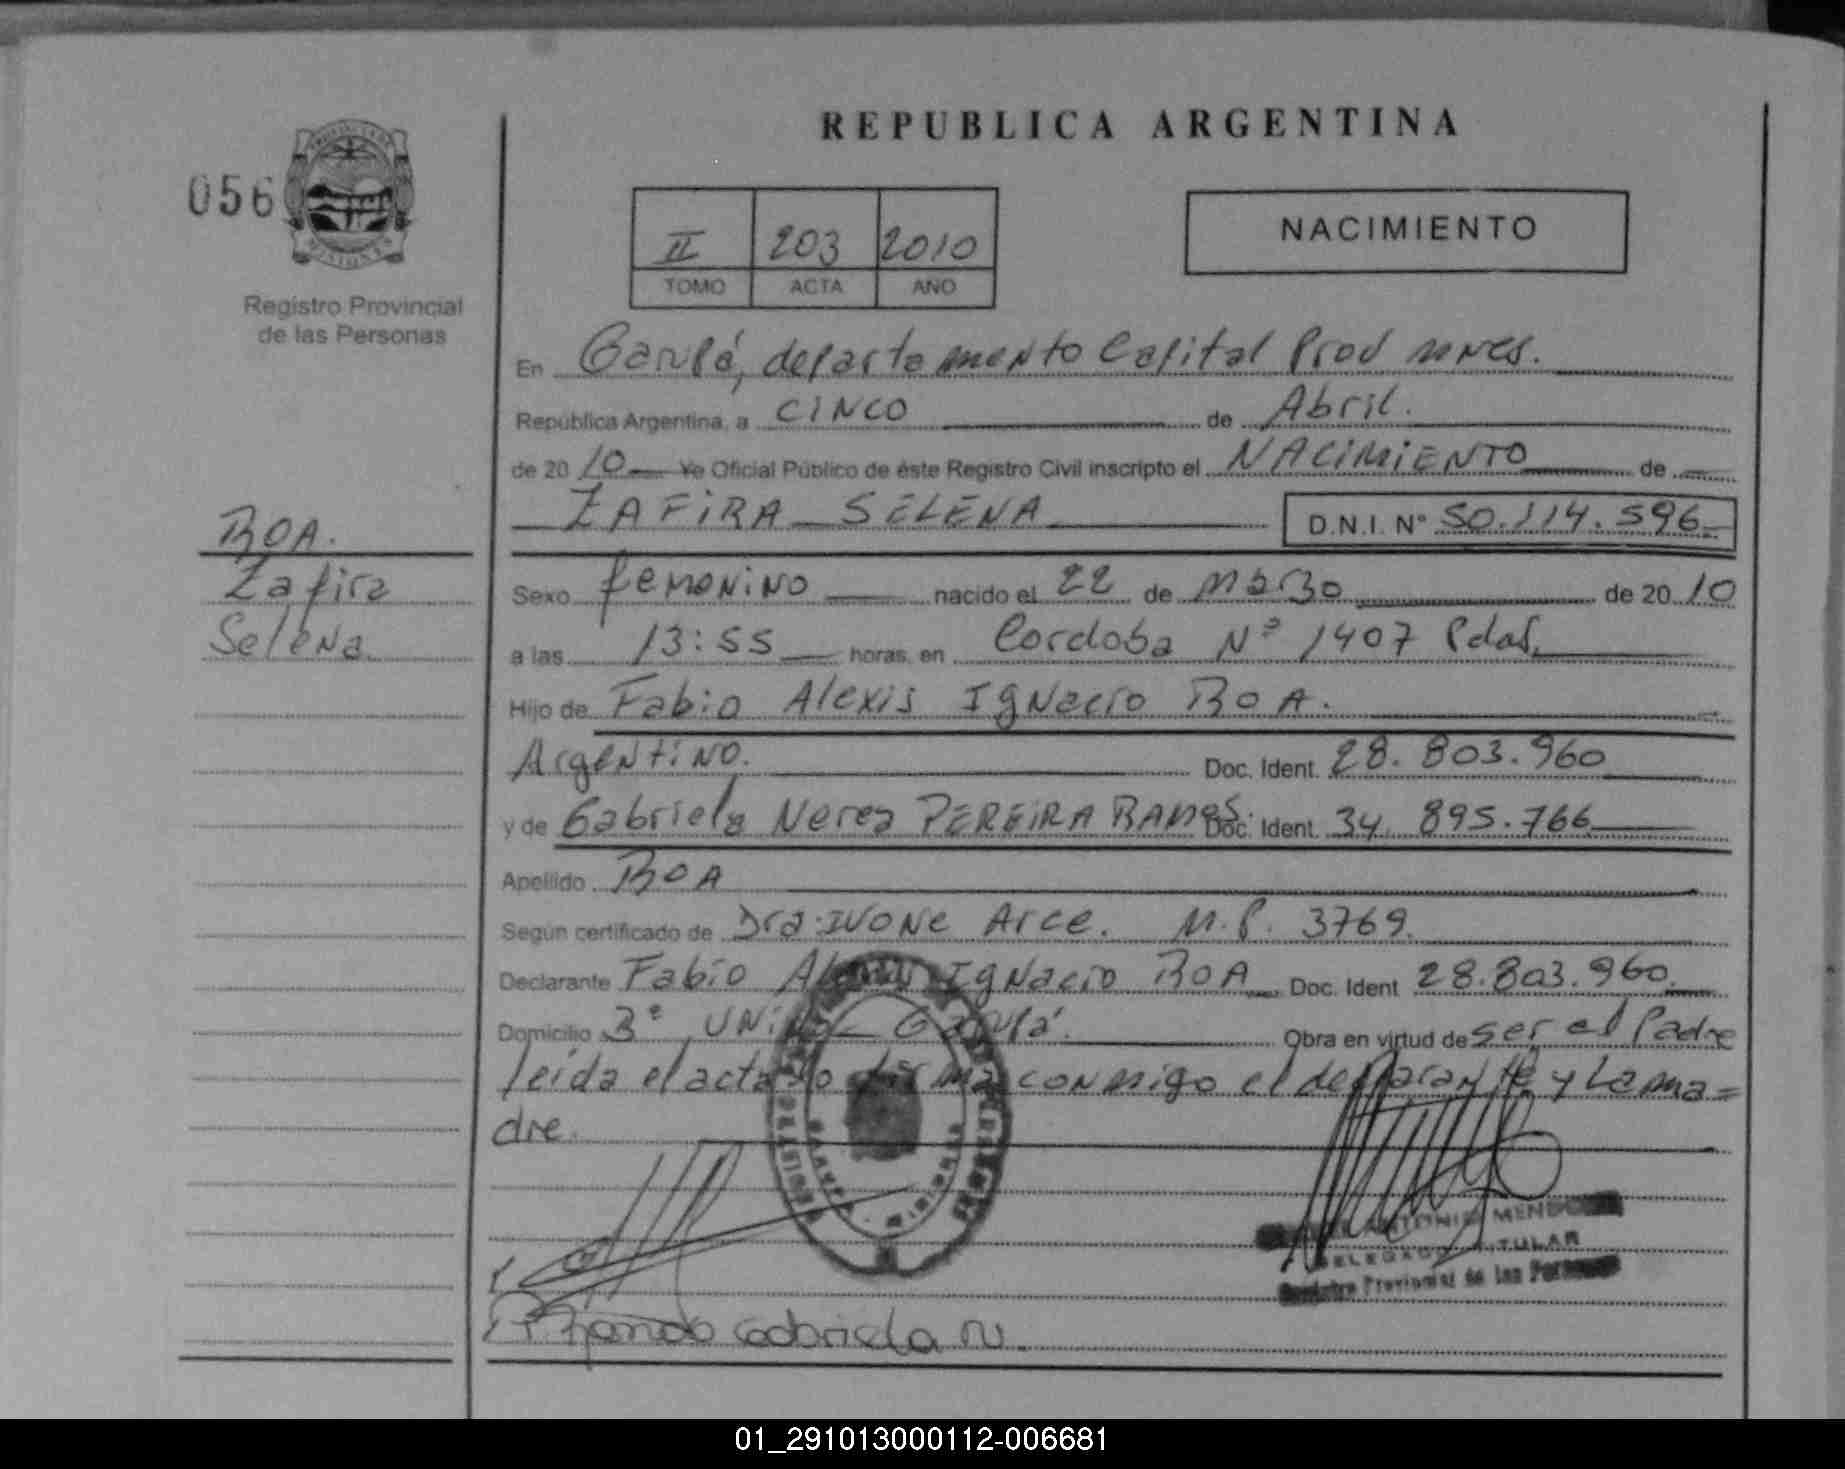 REPUBLICA ARGENTINA
056
Registro Provincial
de las Personas
II 203 2010
TOMO ACTA AÑO
NACIMIENTO
En Garupá, departamento Capital Prov mnes.
República Argentina, a CINCO de Abril.
de 20 10 Yo Oficial Público de éste Registro Civil inscripto el NACIMIENTO de
ZAFIRA SELENA D.N.I. N° 50.114.596
BOA.
Zafira
Selena
Sexo femenino nacido el 22 de marzo de 20 10
a las 13:55 horas, en Cordoba Nº 1407 Pdas,
Hijo de Fabio Alexis Ignacio BOA.
Argentino. Doc. Ident. 28.803.960
y de Gabriela Nerea PEREIRA RAMOS. Doc. Ident. 34.895.766
Apellido BOA
Según certificado de Dra. IVONE Arce. M.P. 3769.
Declarante Fabio Alexis Ignacio BOA Doc. Ident 28.803.960.
Domicilio 3º UNIDA Garupá. Obra en virtud de ser el Padre
leída el acta lo firma conmigo el declarante y la ma=
dre.
ANTONIO
DELEGADO TITULAR
Registro Provincial de las Personas
Gabriela N.
01_291013000112-006681